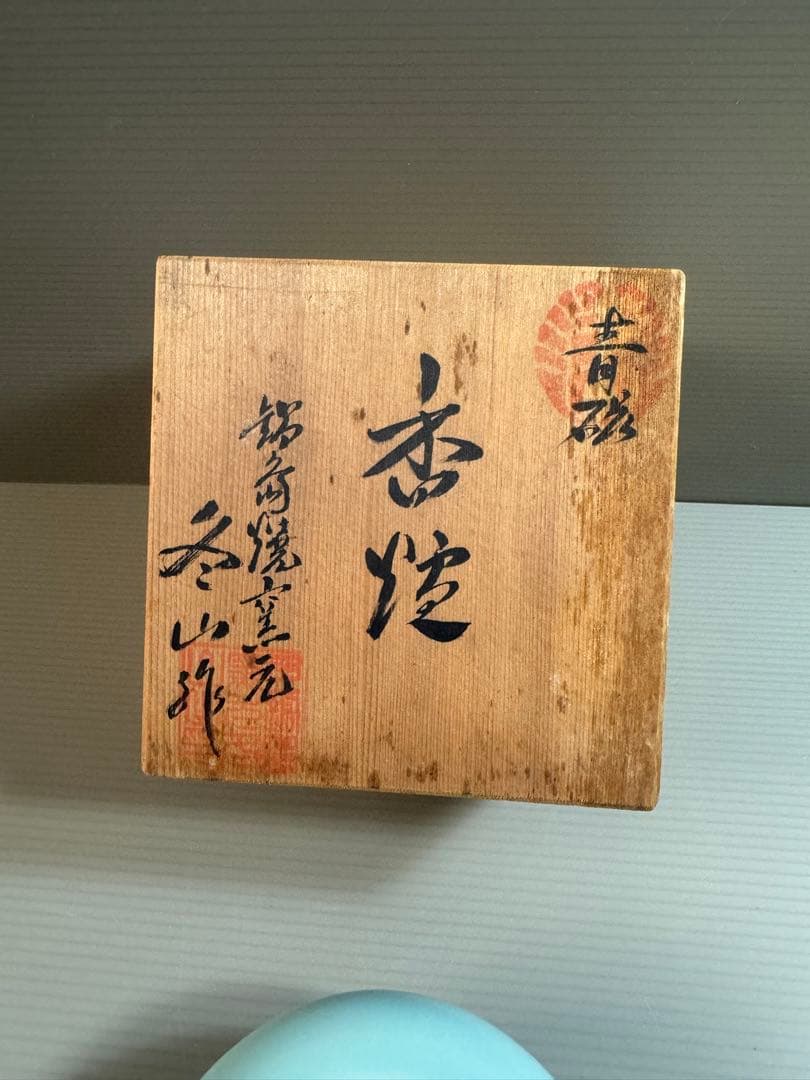 青磁
香炉
鍋島焼窯元
冬山作